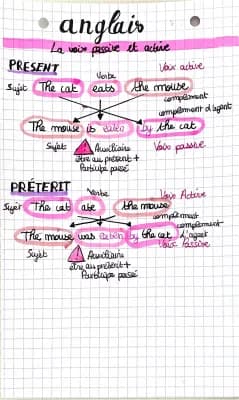 anglais
La voix passive et active
PRESENT
Voix active
Verbe
Sujet The cat eats the mouse
complément
complément d'agent
The mouse is eaten by the cat
Sujet Auxiliaire Voix passive
être au présent +
Participe passé
PRÉTERIT
Verbe Voix Active
Sujet The cat ate the mouse
complément
complément
The mouse was eaten by the cat d'agent
Sujet Auxiliaire Voix Passive
être au préterit +
Participe passé